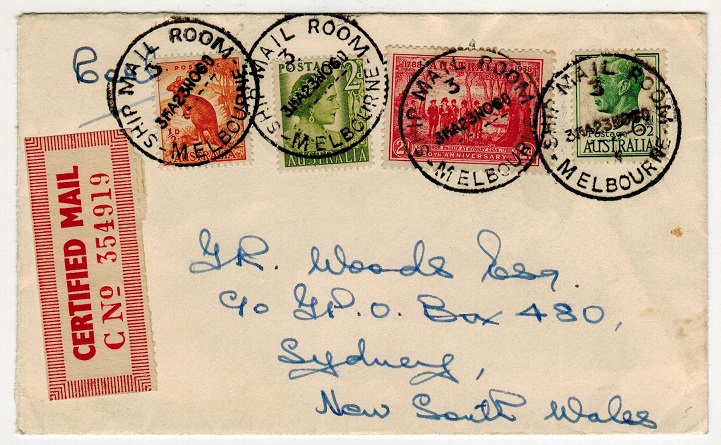 Boat
SHIP MAIL ROOM
3
3PA23NO60
MELBOURNE
POSTAGE
½D
AUSTRALIA
SHIP MAIL ROOM
3
3PA23NO60
MELBOURNE
POSTAGE
2D
AUSTRALIA
SHIP MAIL ROOM
3
3PA23NO60
MELBOURNE
1788 AUSTRALIA 1938
2D
150TH ANNIVERSARY
SHIP MAIL ROOM
3
3PA23NO60
MELBOURNE
Postage 6½D
AUSTRALIA
CERTIFIED MAIL
C No 354919
J.R. Woods Esq.
c/o G.P.O. Box 480,
Sydney,
New South Wales